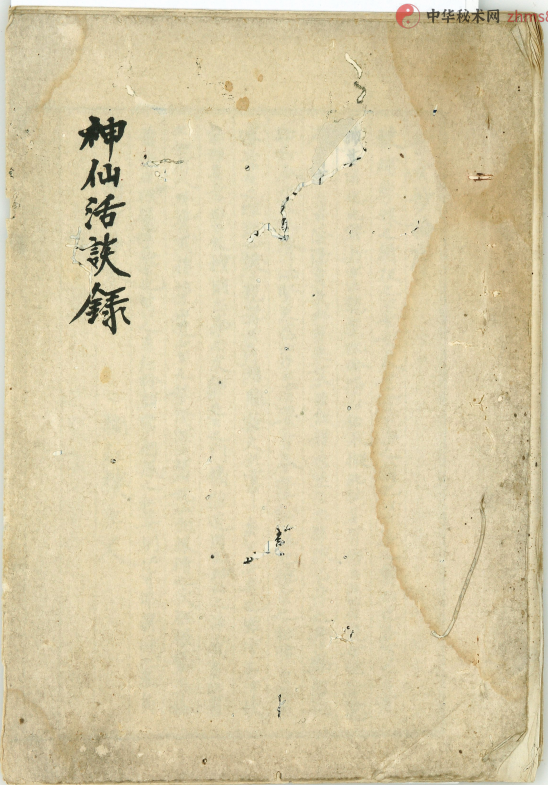 中华秘术网 zhms8
神仙活談録